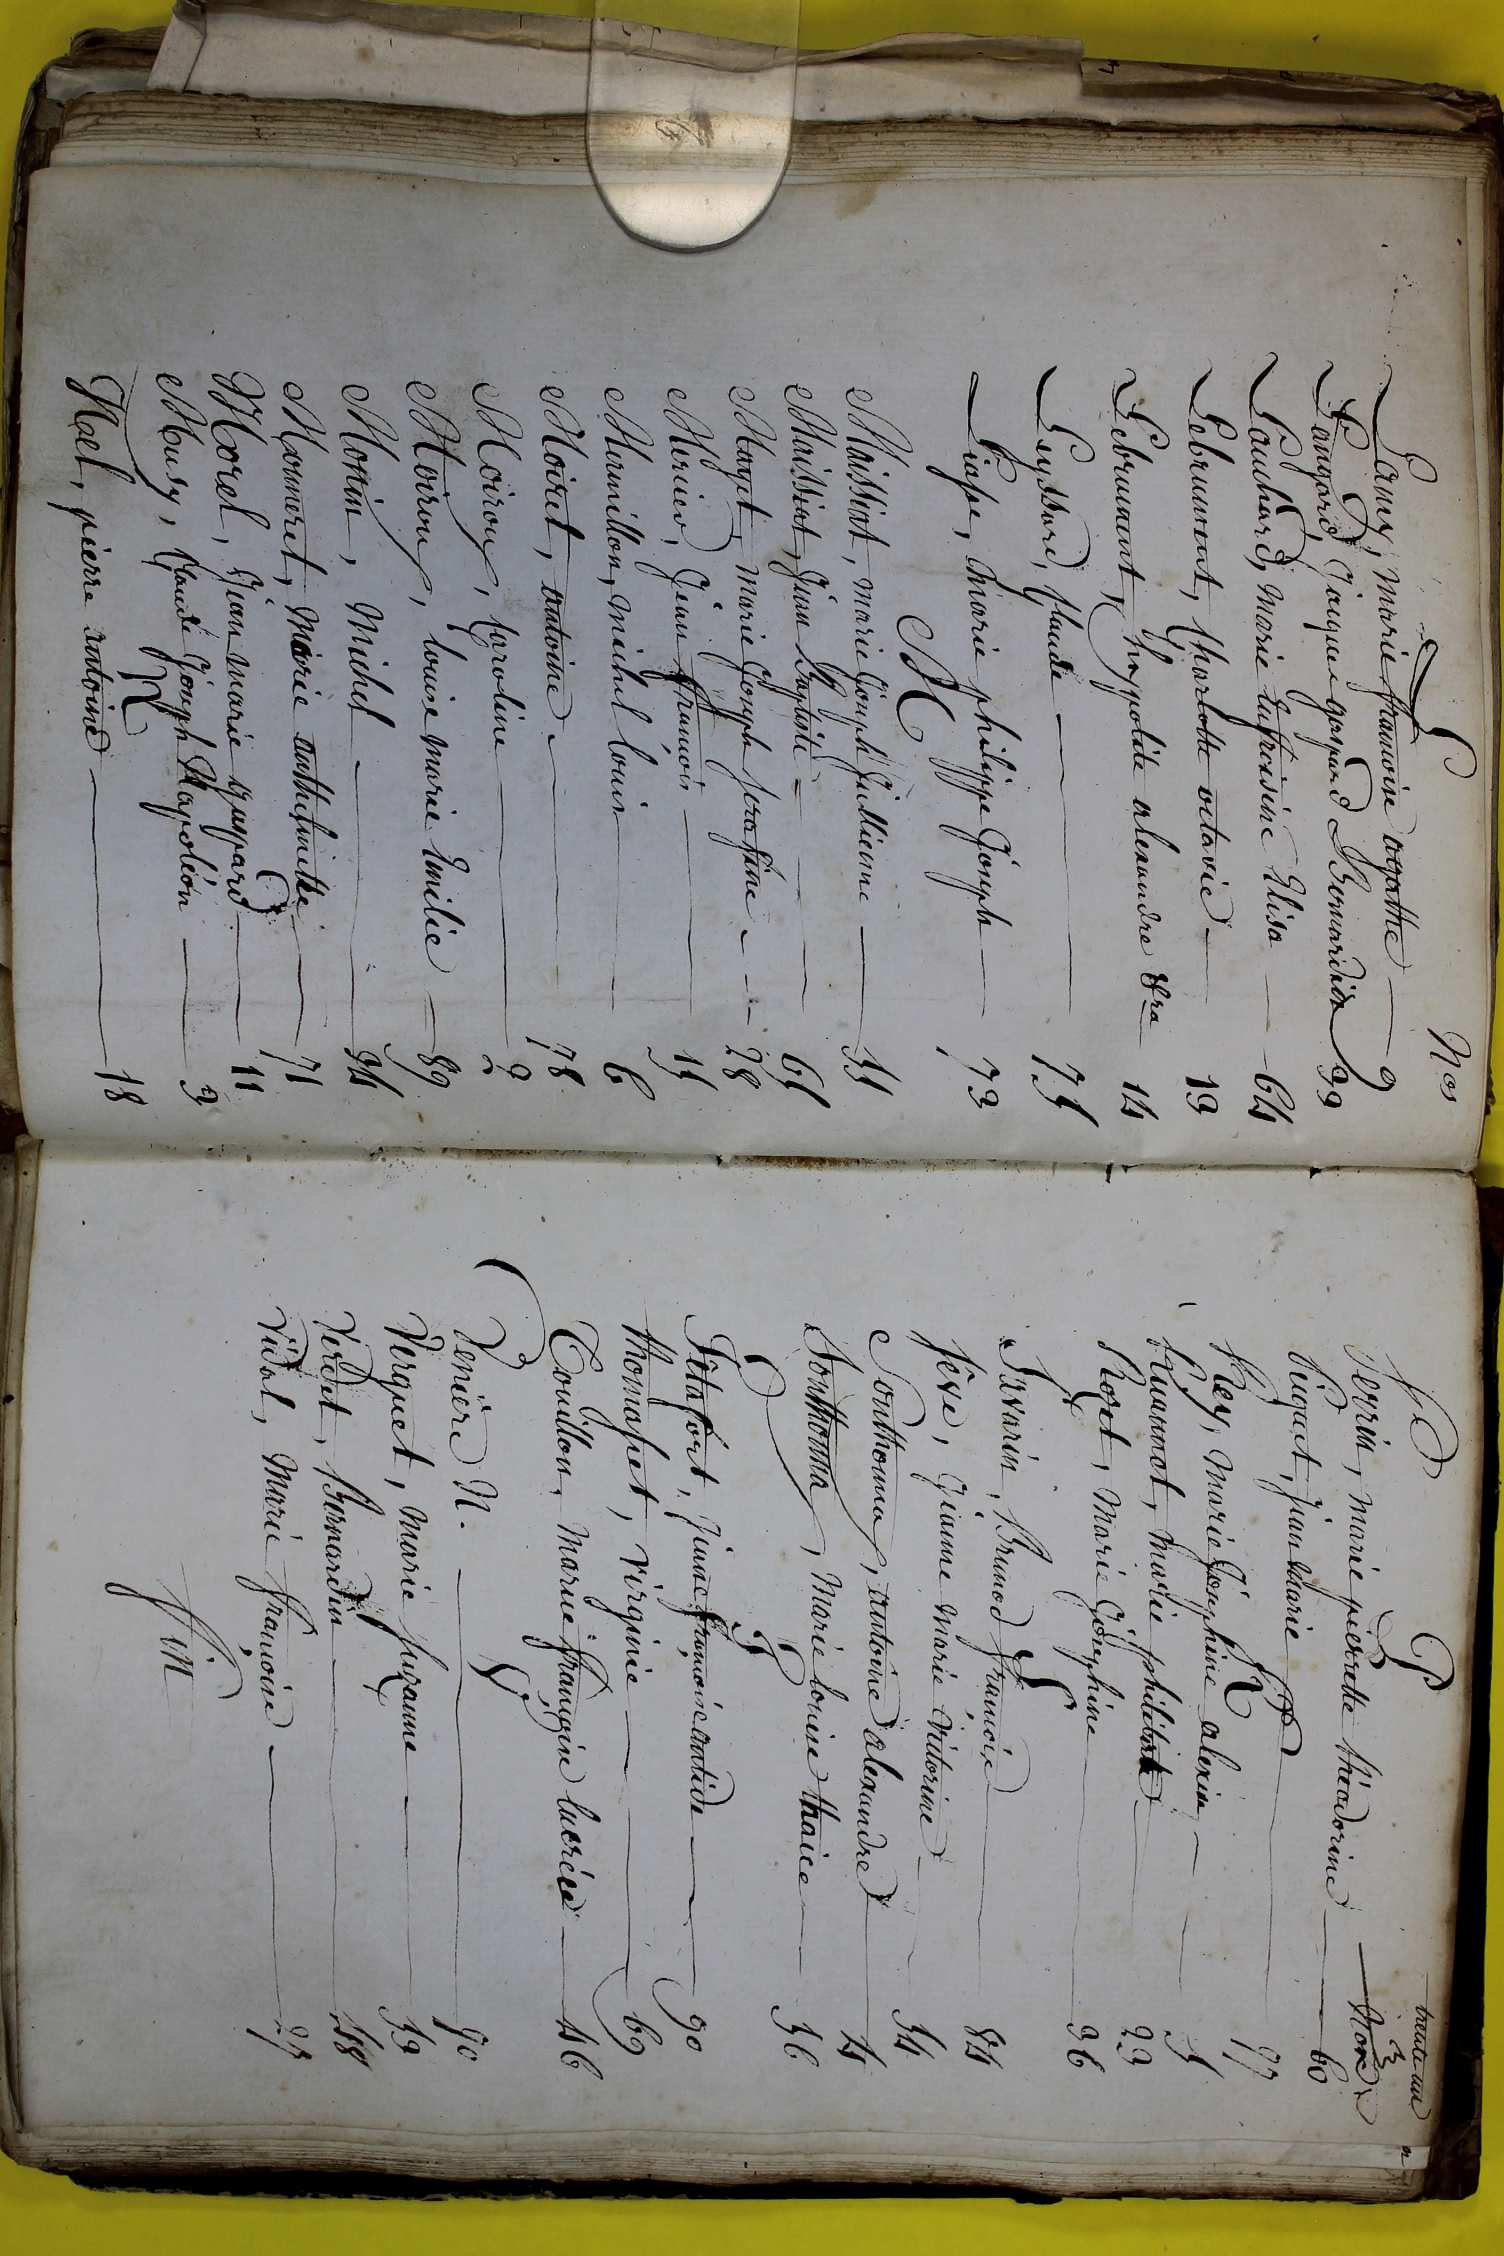 L
Nos
Lamy, marie francoise agatthe 9
Langard, Jaque gaspard Bernardin 99
Lauchard, marie Eufroisine Elisa 64
Lebrument, Charlotte octavie 19
Lebrument, hypolite alexandre &ra 14
Leyssard, Claude 75
Liasse, marie philippe Joseph 73
M
Maissiat, marie Joseph Jullienne 55
Maissiat, Jean Baptiste 65
Mayet, marie Joseph serafine 28
Mercier, Jean francois 15
Mermillon, michel louis 6
Moiret, antoine 78
Moiroux, Caroline 2
Moiroux, louise marie Emilie 89
Monin, Michel 94
Monneret, Marie anthelmette 71
Morel, Jean marie guyard 11
Musy, Claude Joseph Napoléon 3
N
Noel, pierre antoine 18
trente une
P
Nos
Perrin, marie pierrette théodorine 60
Puget, Jean Marie 97
R
Rey, Marie Joséphine alexine 5
Ruannot, marie philiberte 23
Rozet, Marie Joséphine 96
S
Savarin, Bruno francois 84
sève, Jeanne Marie Victorine 54
Sonthonnax, antoine alexandre 4
Sonthonna, Marie louise thaice 56
T
Tillafort, Jeane francoise antide 90
thomasset, Virginie 69
Touillon, Marie françoise lucréce 46
V
Venière N. 70
Verguet, Marie suzanne 59
Verdet, Bernardin 48
Vidal, Marie francoise 27
fin